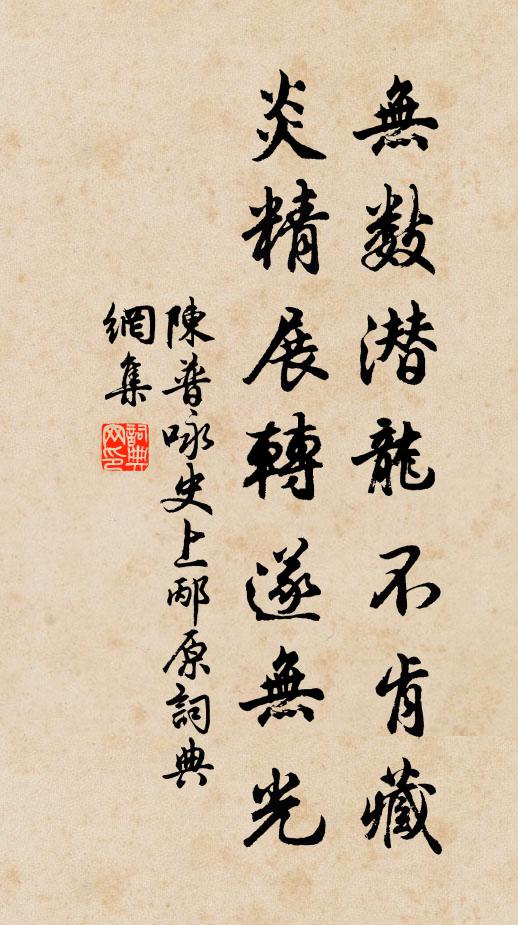 無數潛龍不肯藏
炎精展轉遂無光
陳普咏史上邴原詞典
網集
詞典
網印